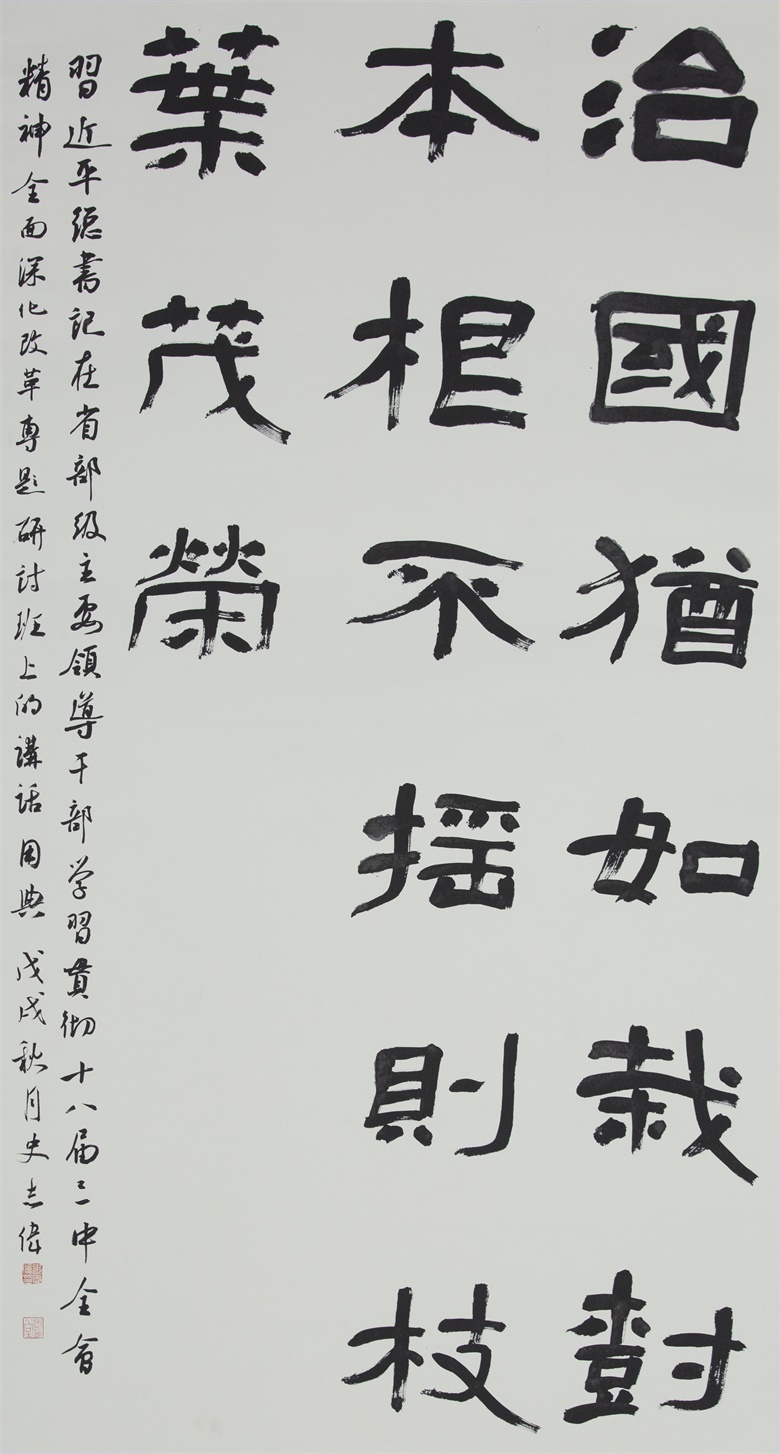 治國猶如栽尌
本根不摇則枝
葉茂榮
習近平總書記在省部級主要領導干部学習貫彻十八届三中全會
精神全面深化改革專題研討班上的講話用典 戊戌秋月史志偉